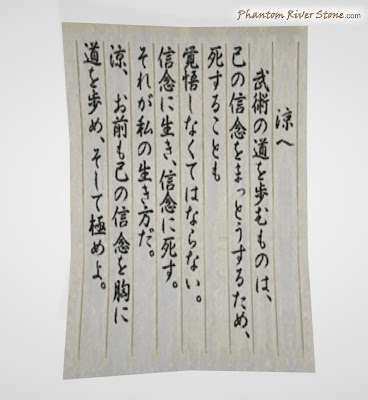 Phantom River Stone.com
涼へ
武術の道を歩むものは、
己の信念をまっとうするため、
死することも
覚悟しなくてはならない。
信念に生き、信念に死す。
それが私の生き方だ。
涼、お前も己の信念を胸に
道を歩め、そして極めよ。